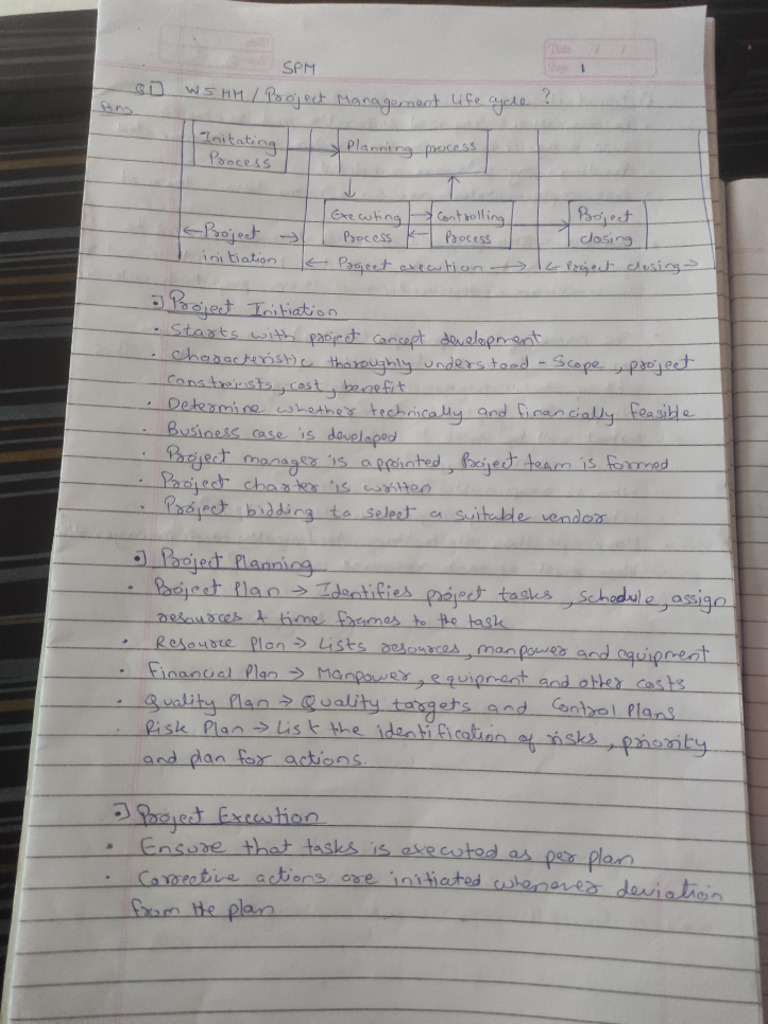 SPM
Date / /
Page 1
Q1] W5HH / Project Management Life cycle ?
Ans
Initating Process
Planning process
Executing Process
Controlling Process
Project closing
Project initiation
Project execution
Project closing
•] Project Initiation
• Starts with project concept development
• Characteristic thoroughly understood - Scope, project
constraists, cost, benefit
• Determine whether technically and financially feasible
• Business case is developed
• Project manager is appointed, Project team is formed
• Project charter is written
• Project bidding to select a suitable vendor
•] Project Planning
• Project Plan → Identifies project tasks, schedule, assign
resources & time frames to the task
• Resource Plan → Lists resources, manpower and equipment
• Financial Plan → Manpower, equipment and other costs
• Quality Plan → Quality targets and Control Plans
• Risk Plan → List the identification of risks, priority
and plan for actions.
•] Project Execution
• Ensure that tasks is executed as per plan
• Corrective actions are initiated whenever deviation
from the plan